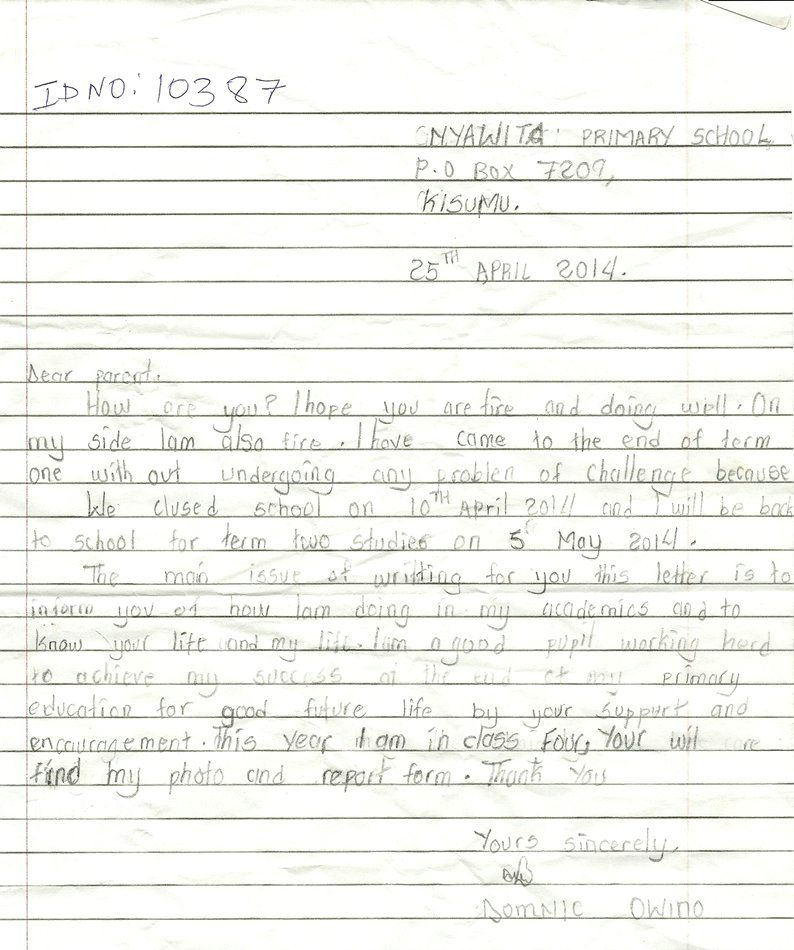 IDNO: 10387
ONYAWITA PRIMARY SCHOOL,
P.O BOX 7209,
KISUMU.
25TH APRIL 2014.
Dear parent.
How are you? I hope you are fire and doing well. On
my side Iam also fire. I have came to the end of term
one with out undergoing any problen of challenge because
We clused school on 10TH April 2014 and I will be back
to school for term two studies on 5 May 2014.
The main issue of writting for you this letter is to
inform you of how Iam doing in my academics and to
know your life and my life. Iam a good pupil working herd
to achieve my success at the end of my primary
education for good future life by your support and
encouragement. This year I am in class Four, Your will
find my photo and report form. Thank You
Yours sincerely,
DOMNIC OWINO